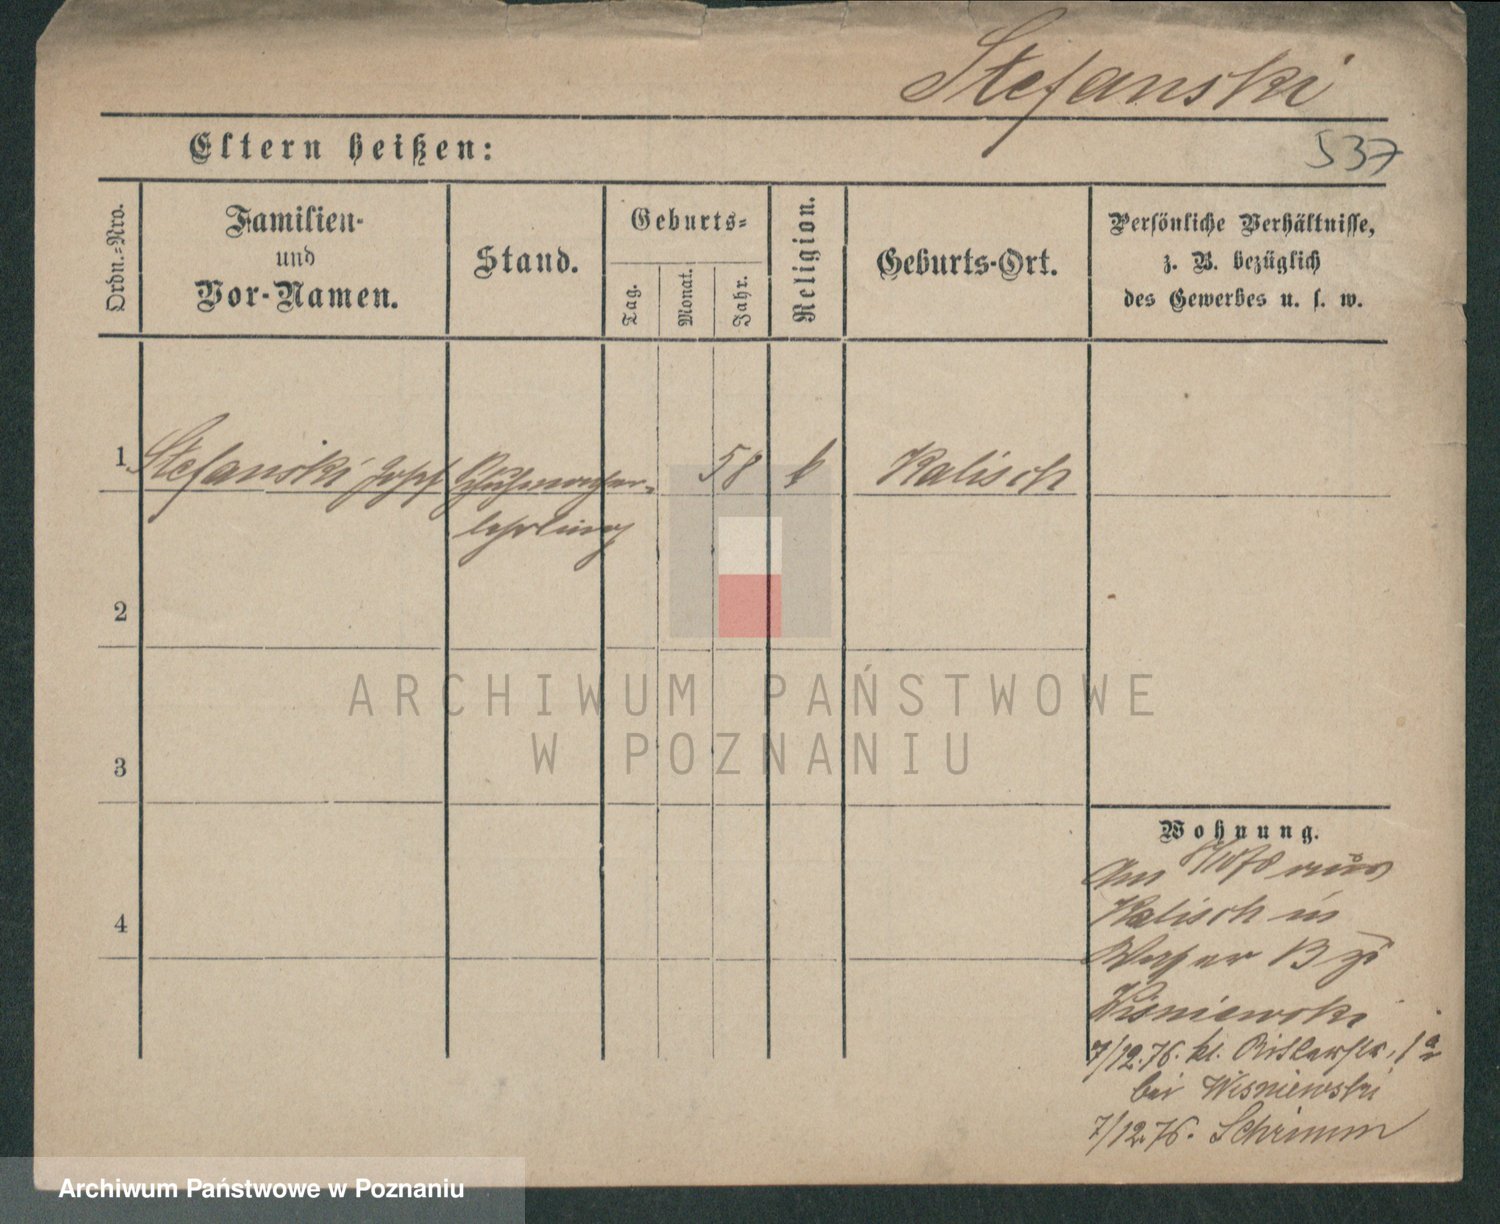 Stefanski
Eltern heißen:
537
Ordn.=Nro.
Familien-
und
Vor-Namen.
Stand.
Geburts=
Tag.
Monat.
Jahr.
Religion.
Geburts-Ort.
Persönliche Verhältnisse,
z. B. bezüglich
des Gewerbes u. s. w.
1 Stefanski Josef Schuhmacher- 58 k Kalisch
lehrling
2
3
4
ARCHIWUM PAŃSTWOWE
W POZNANIU
Wohnung.
aus
Kalisch in
B
Wisniewski
7/12.76. kl. Ritterstr.
bei Wisniewski
7/12.76. Schrimm
Archiwum Państwowe w Poznaniu